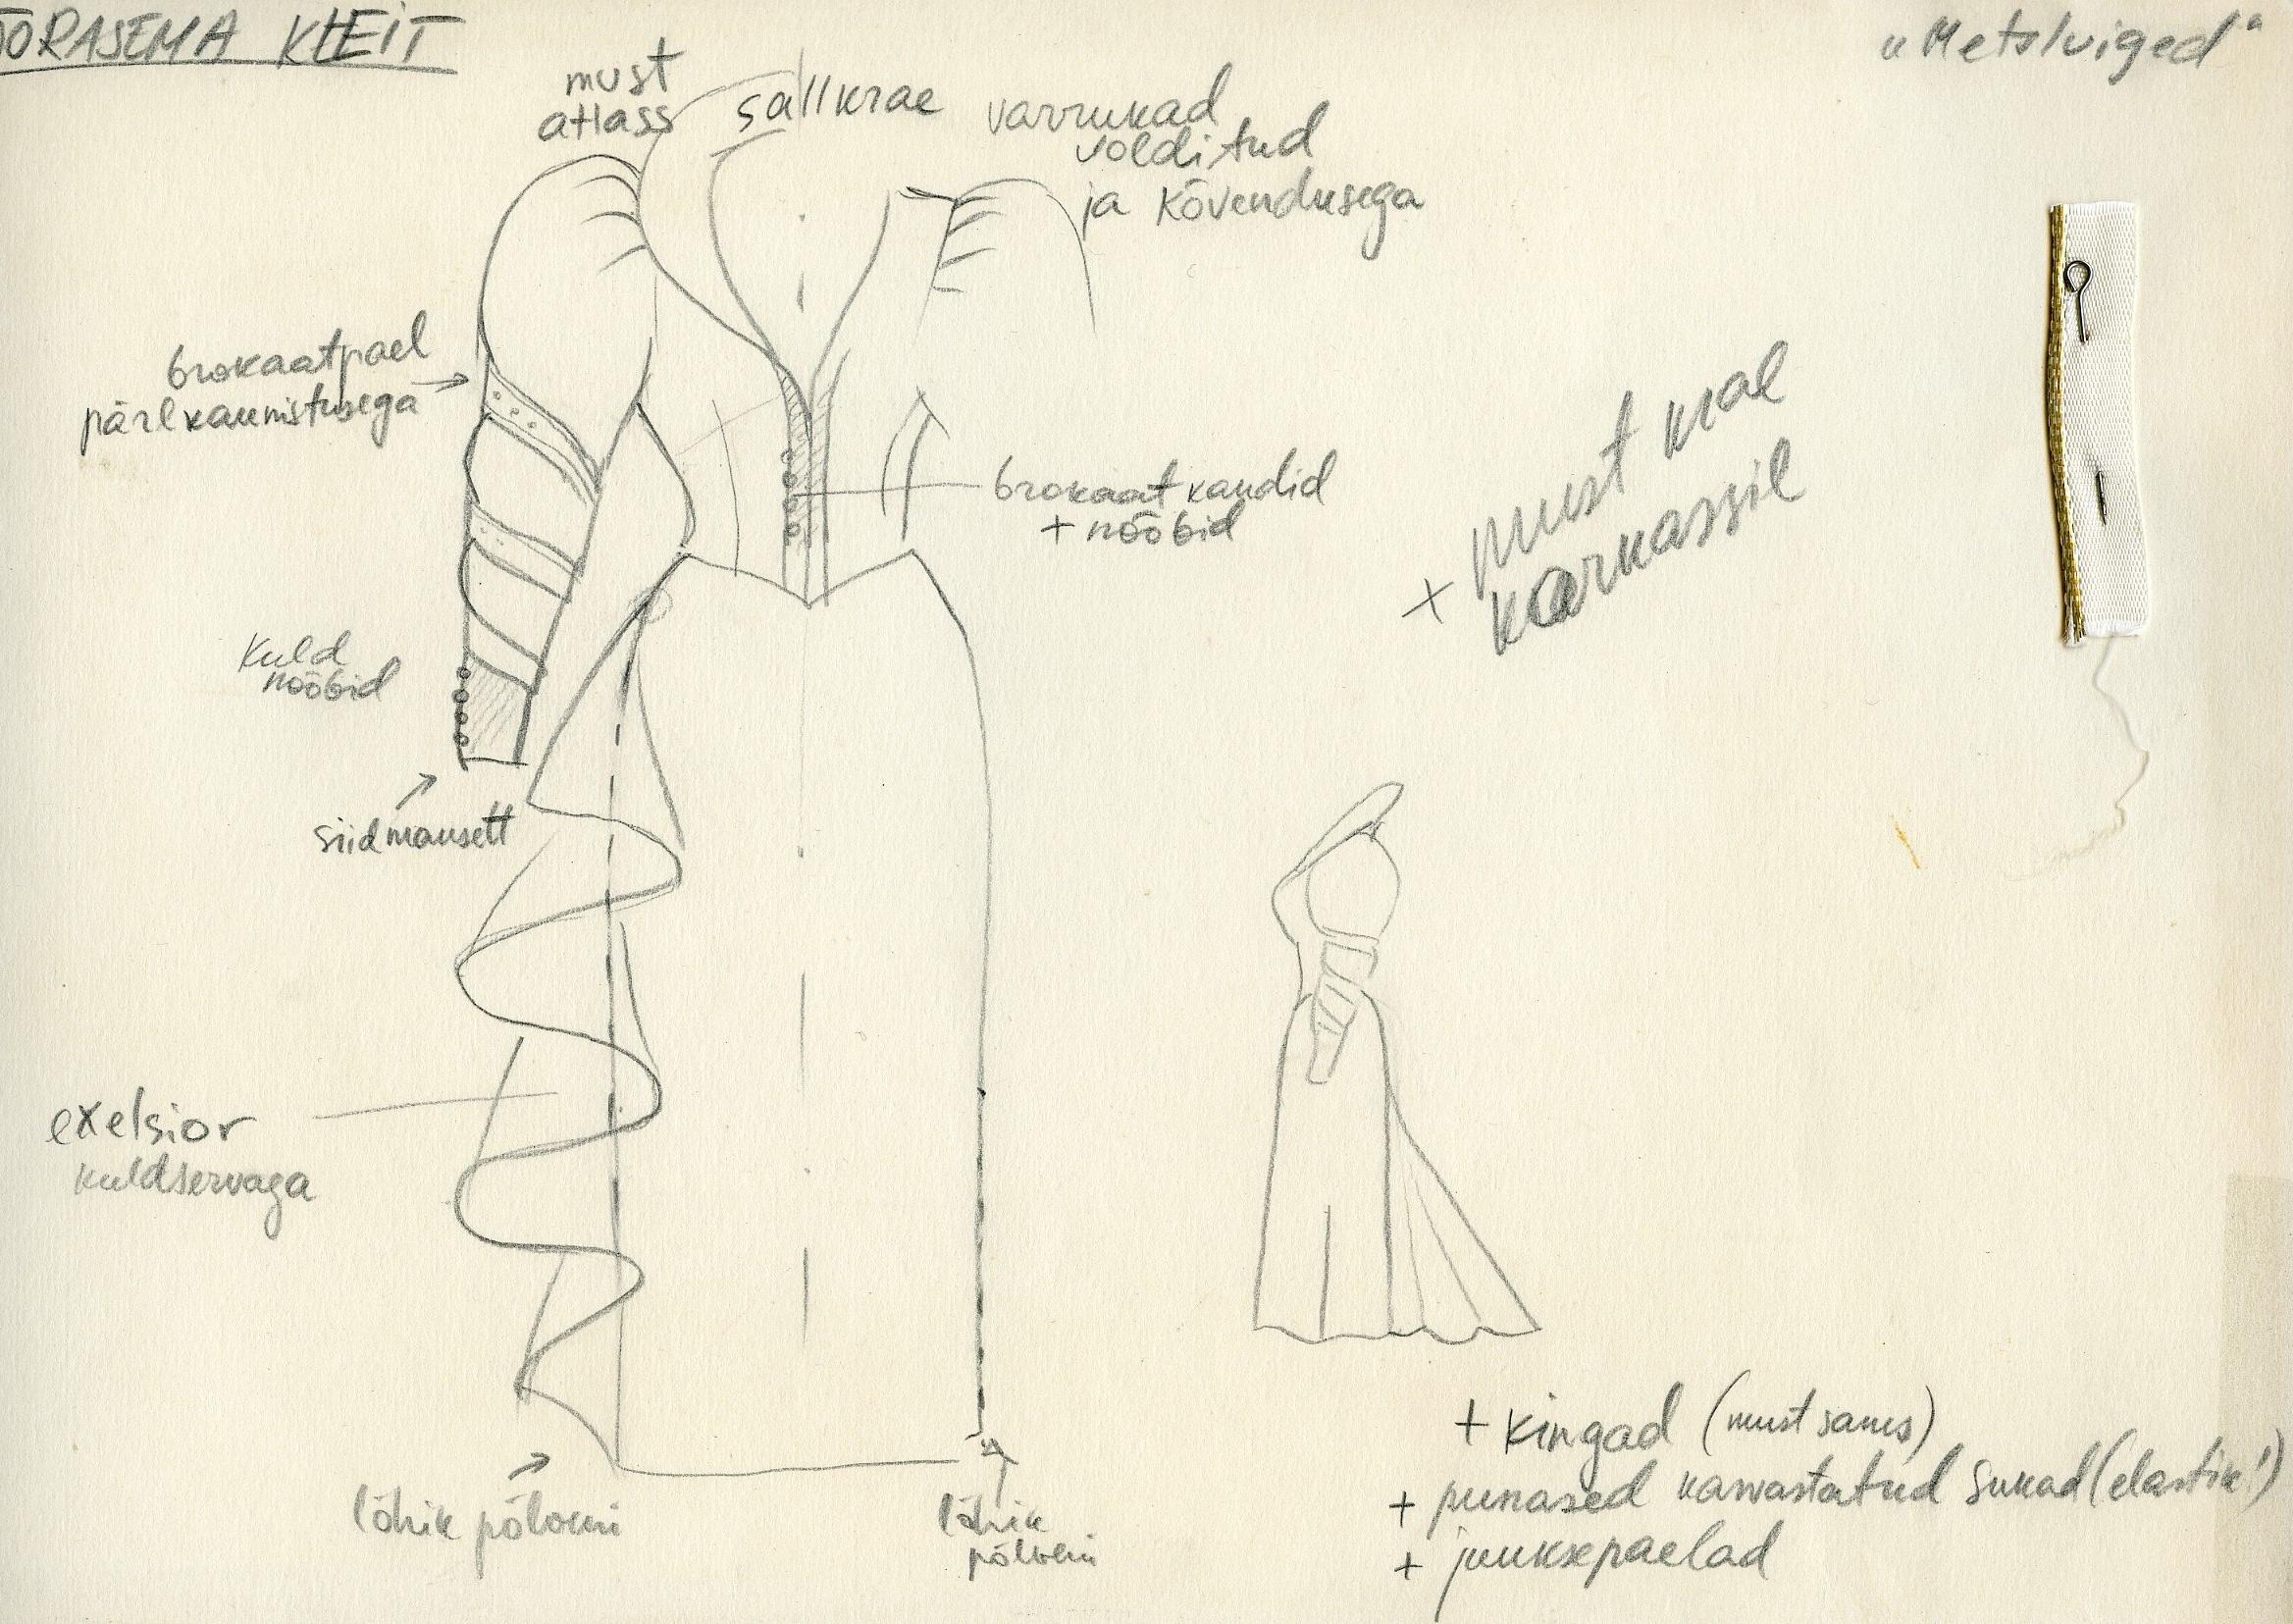 ÕÕRASEMA KLEIT
„Metsluiged“
must
atlass
sallkrae
varrukad
volditud
ja kõvendusega
brokaatpael
pärlkaunistusega
brokaat kandid
+ nööbid
+ must krae
karkassil
kuld
nööbid
siidmansett
exelsior
kuldservaga
lõhik põlveni
lõhik
põlveni
+ kingad (must samis)
+ punased kasvastatud sukad (elastik!)
+ juuksepaelad